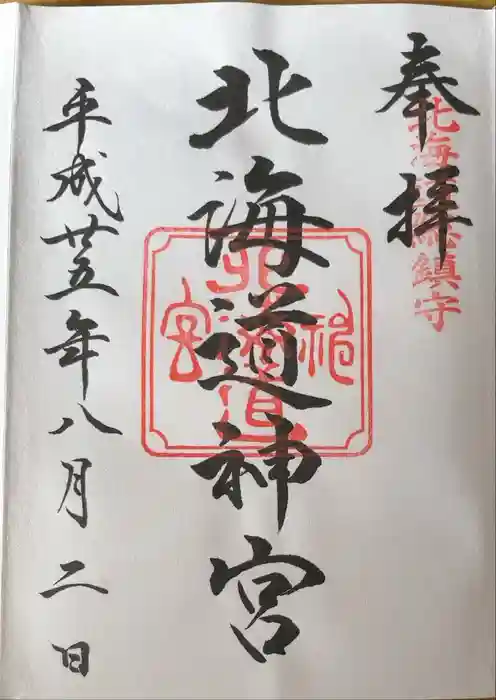 奉拝
北海道総鎮守
北海道神宮
平成廿五年八月二日